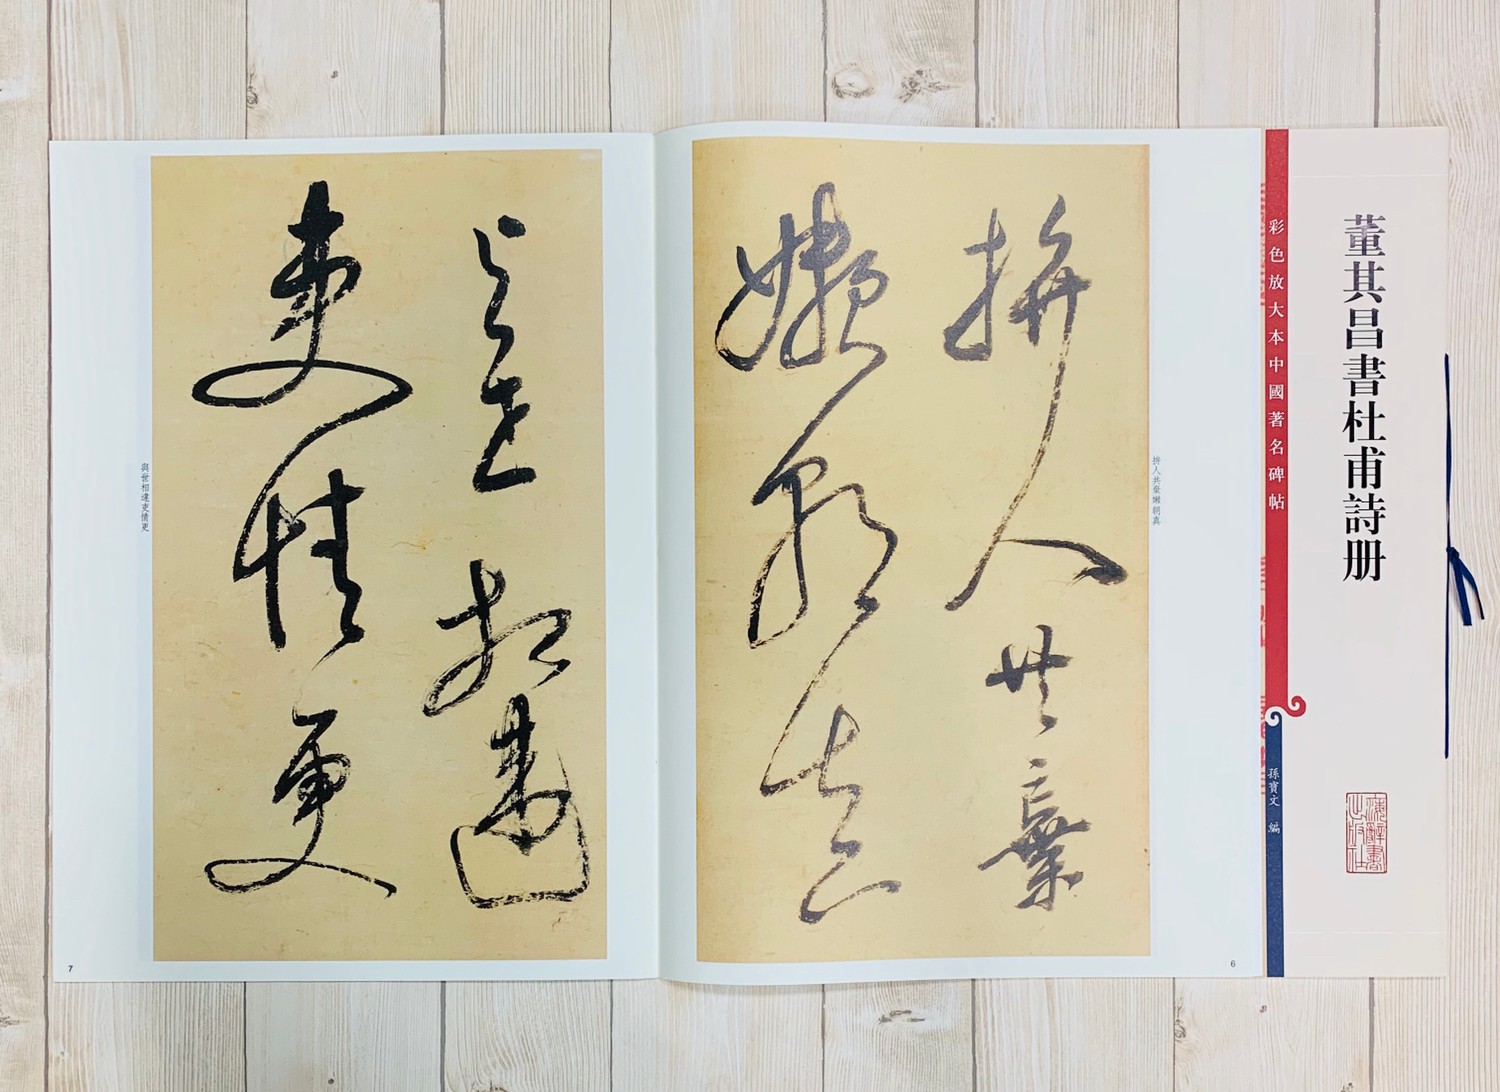 董其昌書杜甫詩册
彩色放大本中國著名碑帖
孫寶文 編
海辭書出版社
拚人共棄懶朝真
拚人共棄
嬾朝真
6
與世相違
吏情更
與世相違吏情更
7